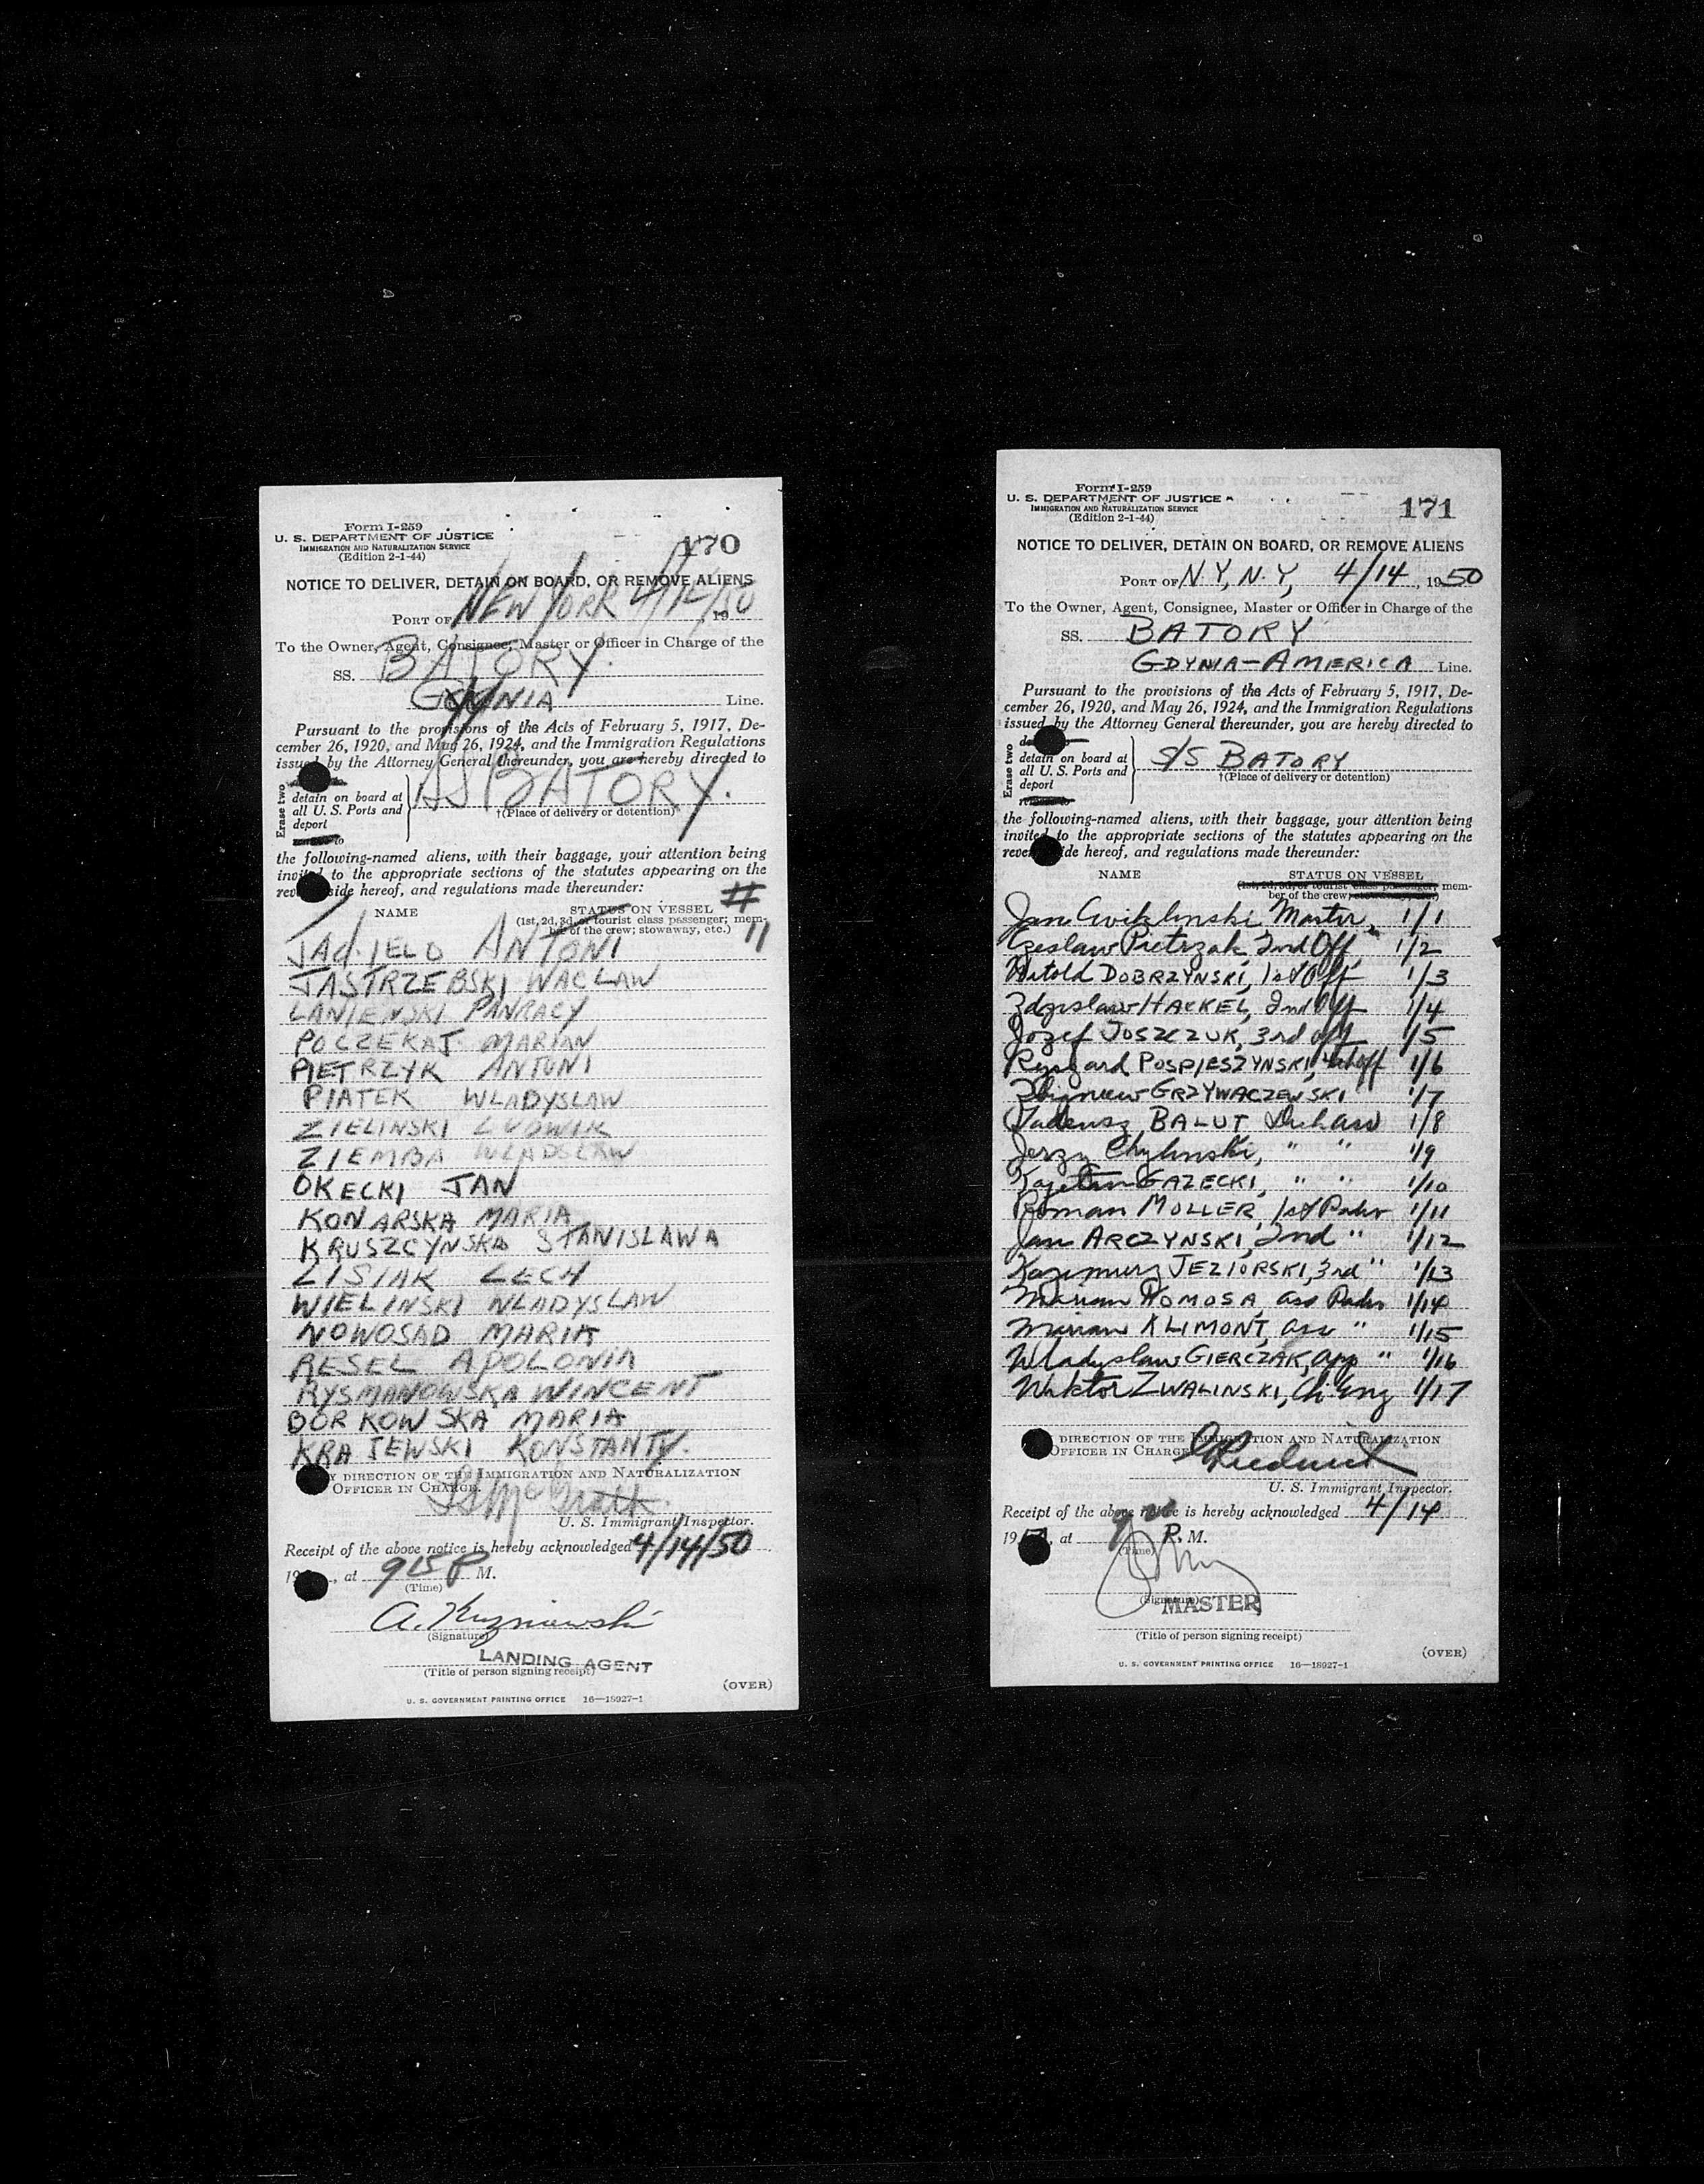 Form I-259
U. S. DEPARTMENT OF JUSTICE
IMMIGRATION AND NATURALIZATION SERVICE
(Edition 2-1-44)
170
NOTICE TO DELIVER, DETAIN ON BOARD, OR REMOVE ALIENS
PORT OF NEW YORK 4/14/50, 19
To the Owner, Agent, Consignee, Master or Officer in Charge of the
SS. BATORY.
GDYNIA Line.
Pursuant to the provisions of the Acts of February 5, 1917, De-
cember 26, 1920, and May 26, 1924, and the Immigration Regulations
issued by the Attorney General thereunder, you are hereby directed to
Erase two
detain on board at
all U. S. Ports and
deport
to
SS BATORY.
†(Place of delivery or detention)
the following-named aliens, with their baggage, your attention being
invited to the appropriate sections of the statutes appearing on the
side hereof, and regulations made thereunder:
#
NAME
STATUS ON VESSEL
(1st, 2d, 3d, or tourist class passenger; mem-
ber of the crew; stowaway, etc.)
11
JAGIELO ANTONI
JASTRZEBSKI WACLAW
LANIENSKI PANRACY
POCZEKAJ MARIAN
PIETRZYK ANTONI
PIATEK WLADYSLAW
ZIELINSKI LUDWIK
ZIEMBA WLADSLAW
OKECKI JAN
KONARSKA MARIA
KRUSZCYNSKA STANISLAWA
LISIAK LECH
WIELINSKI WLADYSLAW
NOWOSAD MARIA
RESEL APOLONIA
RYSMANOWSKA WINCENT
BORKOWSKA MARIA
KRAJEWSKI KONSTANTY.
Y DIRECTION OF THE IMMIGRATION AND NATURALIZATION
OFFICER IN CHARGE.
U. S. Immigrant Inspector.
Receipt of the above notice is hereby acknowledged 4/14/50
19, at 915 P M.
(Time)
A. Kuzniewski
(Signature)
LANDING AGENT
(Title of person signing receipt)
(OVER)
U. S. GOVERNMENT PRINTING OFFICE 16—18927-1
Form I-259
U. S. DEPARTMENT OF JUSTICE
IMMIGRATION AND NATURALIZATION SERVICE
(Edition 2-1-44)
171
NOTICE TO DELIVER, DETAIN ON BOARD, OR REMOVE ALIENS
PORT OF N.Y, N.Y, 4/14, 1950
To the Owner, Agent, Consignee, Master or Officer in Charge of the
SS. BATORY
GDYNIA-AMERICA Line.
Pursuant to the provisions of the Acts of February 5, 1917, De-
cember 26, 1920, and May 26, 1924, and the Immigration Regulations
issued by the Attorney General thereunder, you are hereby directed to
Erase two
detain on board at
all U. S. Ports and
deport
S/S BATORY
†(Place of delivery or detention)
the following-named aliens, with their baggage, your attention being
invited to the appropriate sections of the statutes appearing on the
side hereof, and regulations made thereunder:
NAME
STATUS ON VESSEL
(1st, 2d, 3d, or tourist class passenger; mem-
ber of the crew; stowaway, etc.)
Jan Cwiklinski, Master, 1/1
Czeslaw Pietrzak, 2nd Off 1/2
Witold DOBRZYNSKI, 1st Off 1/3
Zdzislaw HACKEL, 2nd Off 1/4
Jozef JOSZCZUK, 3rd off 1/5
Ryszard POSPIESZYNSKI, 4th off 1/6
Zbigniew GRZYWACZEWSKI 1/7
Tadeusz BALUT 1/8
Jerzy Chylinski, " " 1/9
Kajetan GAZECKI, " " 1/10
Roman MOLLER, 1st 1/11
Jan ARCZYNSKI, 2nd " 1/12
Kazimierz JEZIORSKI, 3rd " 1/13
Marian HOMOSA, ass 1/14
Marian KLIMONT, ass " 1/15
Wladyslaw GIERCZAK, app " 1/16
Wiktor ZWALINSKI, Ch Eng 1/17
DIRECTION OF THE IMMIGRATION AND NATURALIZATION
OFFICER IN CHARGE
U. S. Immigrant Inspector.
Receipt of the above notice is hereby acknowledged 4/14
19, at P. M.
(Time)
(Signature)
MASTER
(Title of person signing receipt)
(OVER)
U. S. GOVERNMENT PRINTING OFFICE 16—18927-1